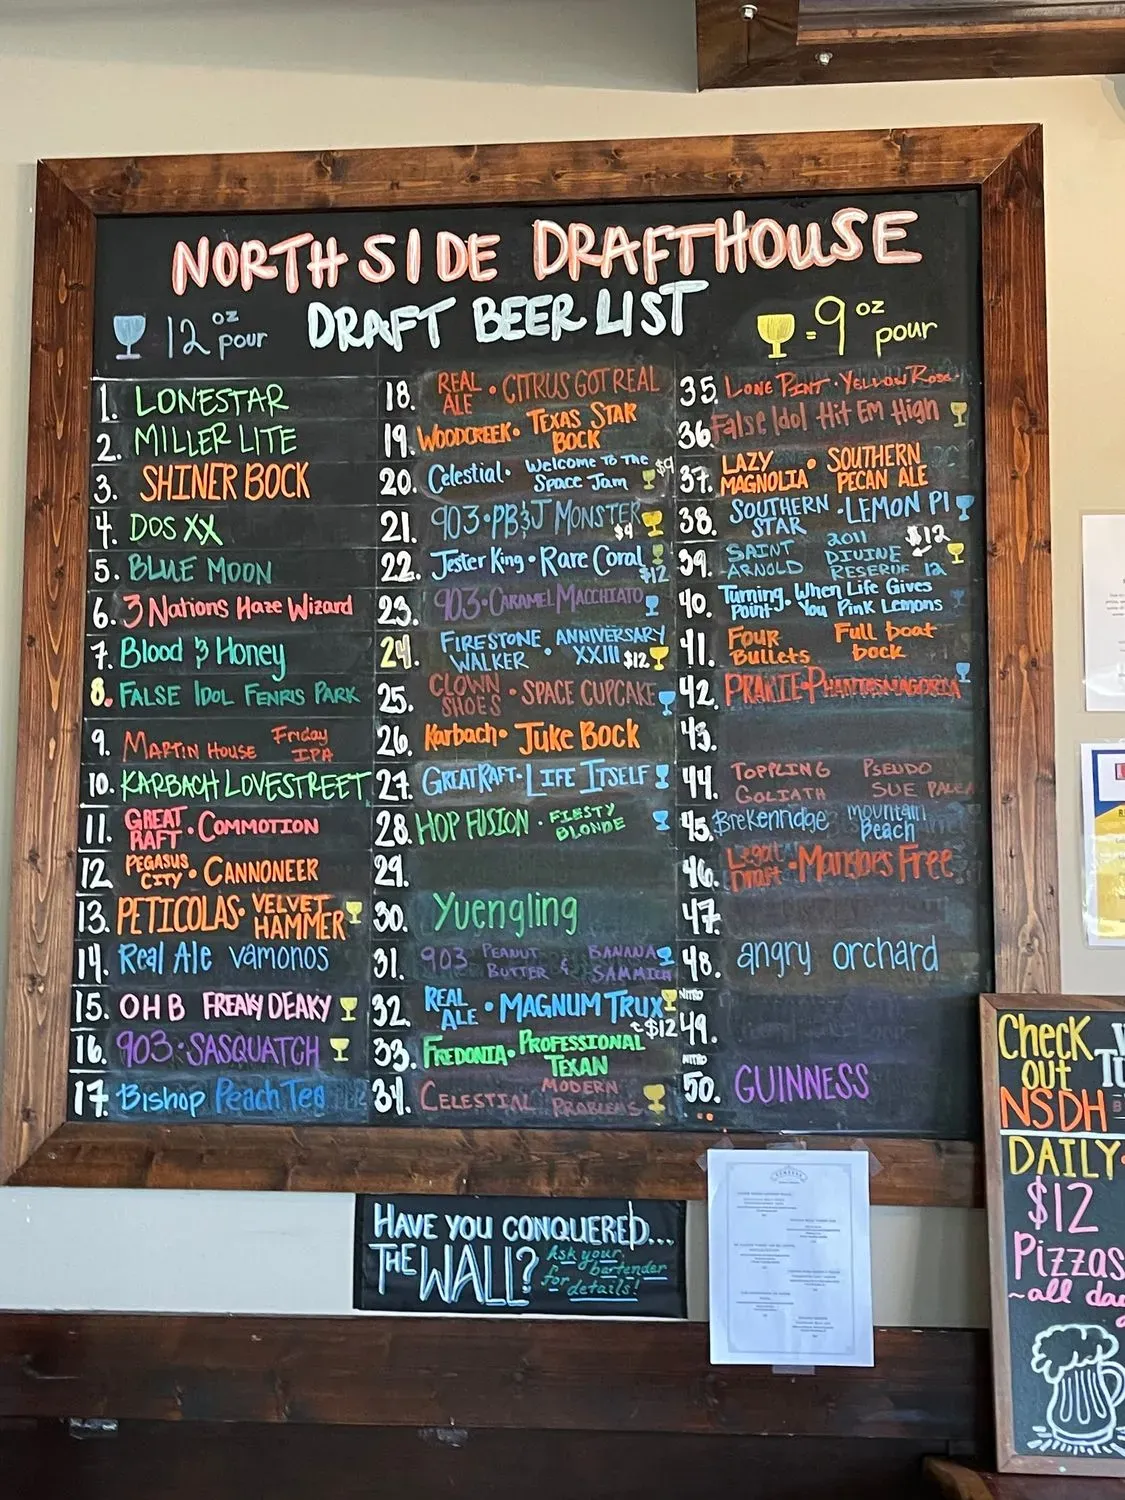 NORTHSIDE DRAFTHOUSE
DRAFT BEER LIST
12 oz pour
= 9 oz pour
1. LONESTAR
2. MILLER LITE
3. SHINER BOCK
4. DOS XX
5. BLUE MOON
6. 3 Nations Haze Wizard
7. Blood & Honey
8. FALSE IDOL FENRIS PARK
9. MARTIN HOUSE Friday IPA
10. KARBACH LOVESTREET
11. GREAT RAFT • COMMOTION
12. PEGASUS CITY • CANNONEER
13. PETICOLAS • VELVET HAMMER
14. Real Ale Vamonos
15. OHB FREAKY DEAKY
16. 903 • SASQUATCH
17. Bishop Peach Tea
18. REAL ALE • CITRUS GOT REAL
19. WOODCREEK • TEXAS STAR BOCK
20. Celestial • Welcome To The Space Jam $9
21. 903 • PB&J MONSTER $9
22. Jester King • Rare Coral $12
23. 903 • CARAMEL MACCHIATO
24. FIRESTONE WALKER • ANNIVERSARY XXIII $12
25. CLOWN SHOES • SPACE CUPCAKE
26. Karbach • JUKE BOCK
27. GREAT RAFT • LIFE ITSELF
28. HOP FUSION • FIESTY BLONDE
29.
30. Yuengling
31. 903 PEANUT BUTTER & BANANA SAMMICH
32. REAL ALE • MAGNUM TRUX $12
33. FREDONIA • PROFESSIONAL TEXAN
34. CELESTIAL MODERN PROBLEMS
35. LONE PINT • YELLOW ROSE
36. False Idol Hit Em High
37. LAZY MAGNOLIA • SOUTHERN PECAN ALE
38. SOUTHERN STAR • LEMON PI
39. SAINT ARNOLD 2011 DIVINE RESERVE 12 $12
40. Turning Point • When Life Gives You Pink Lemons
41. FOUR Bullets Full boat bock
42. PRARIE • PHANTASMAGORIA
43.
44. TOPPLING GOLIATH PSEUDO SUE
45. Brekenridge mountain Beach
46. Legal Draft • Mangoes Free
47.
48. angry orchard
NITRO
49.
NITRO
50. GUINNESS
HAVE YOU CONQUERED...
THE WALL?
Ask your bartender for details!
Check
out
NSDH
DAILY
$12
Pizzas
~all day